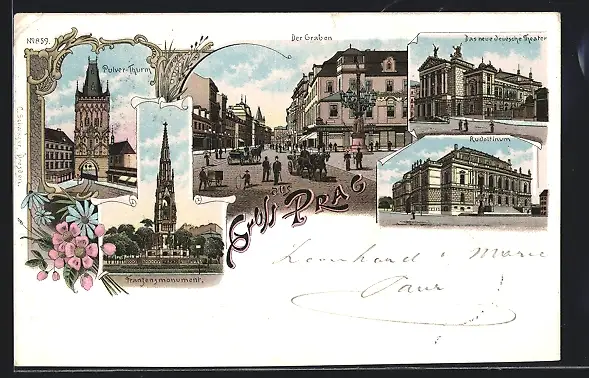 No 859.
Pulver-Thurm
Der Graben
Das neue deutsche Theater
Rudolfinum
Gruss aus PRAG
Franzensmonument.
Leonhard u Marie